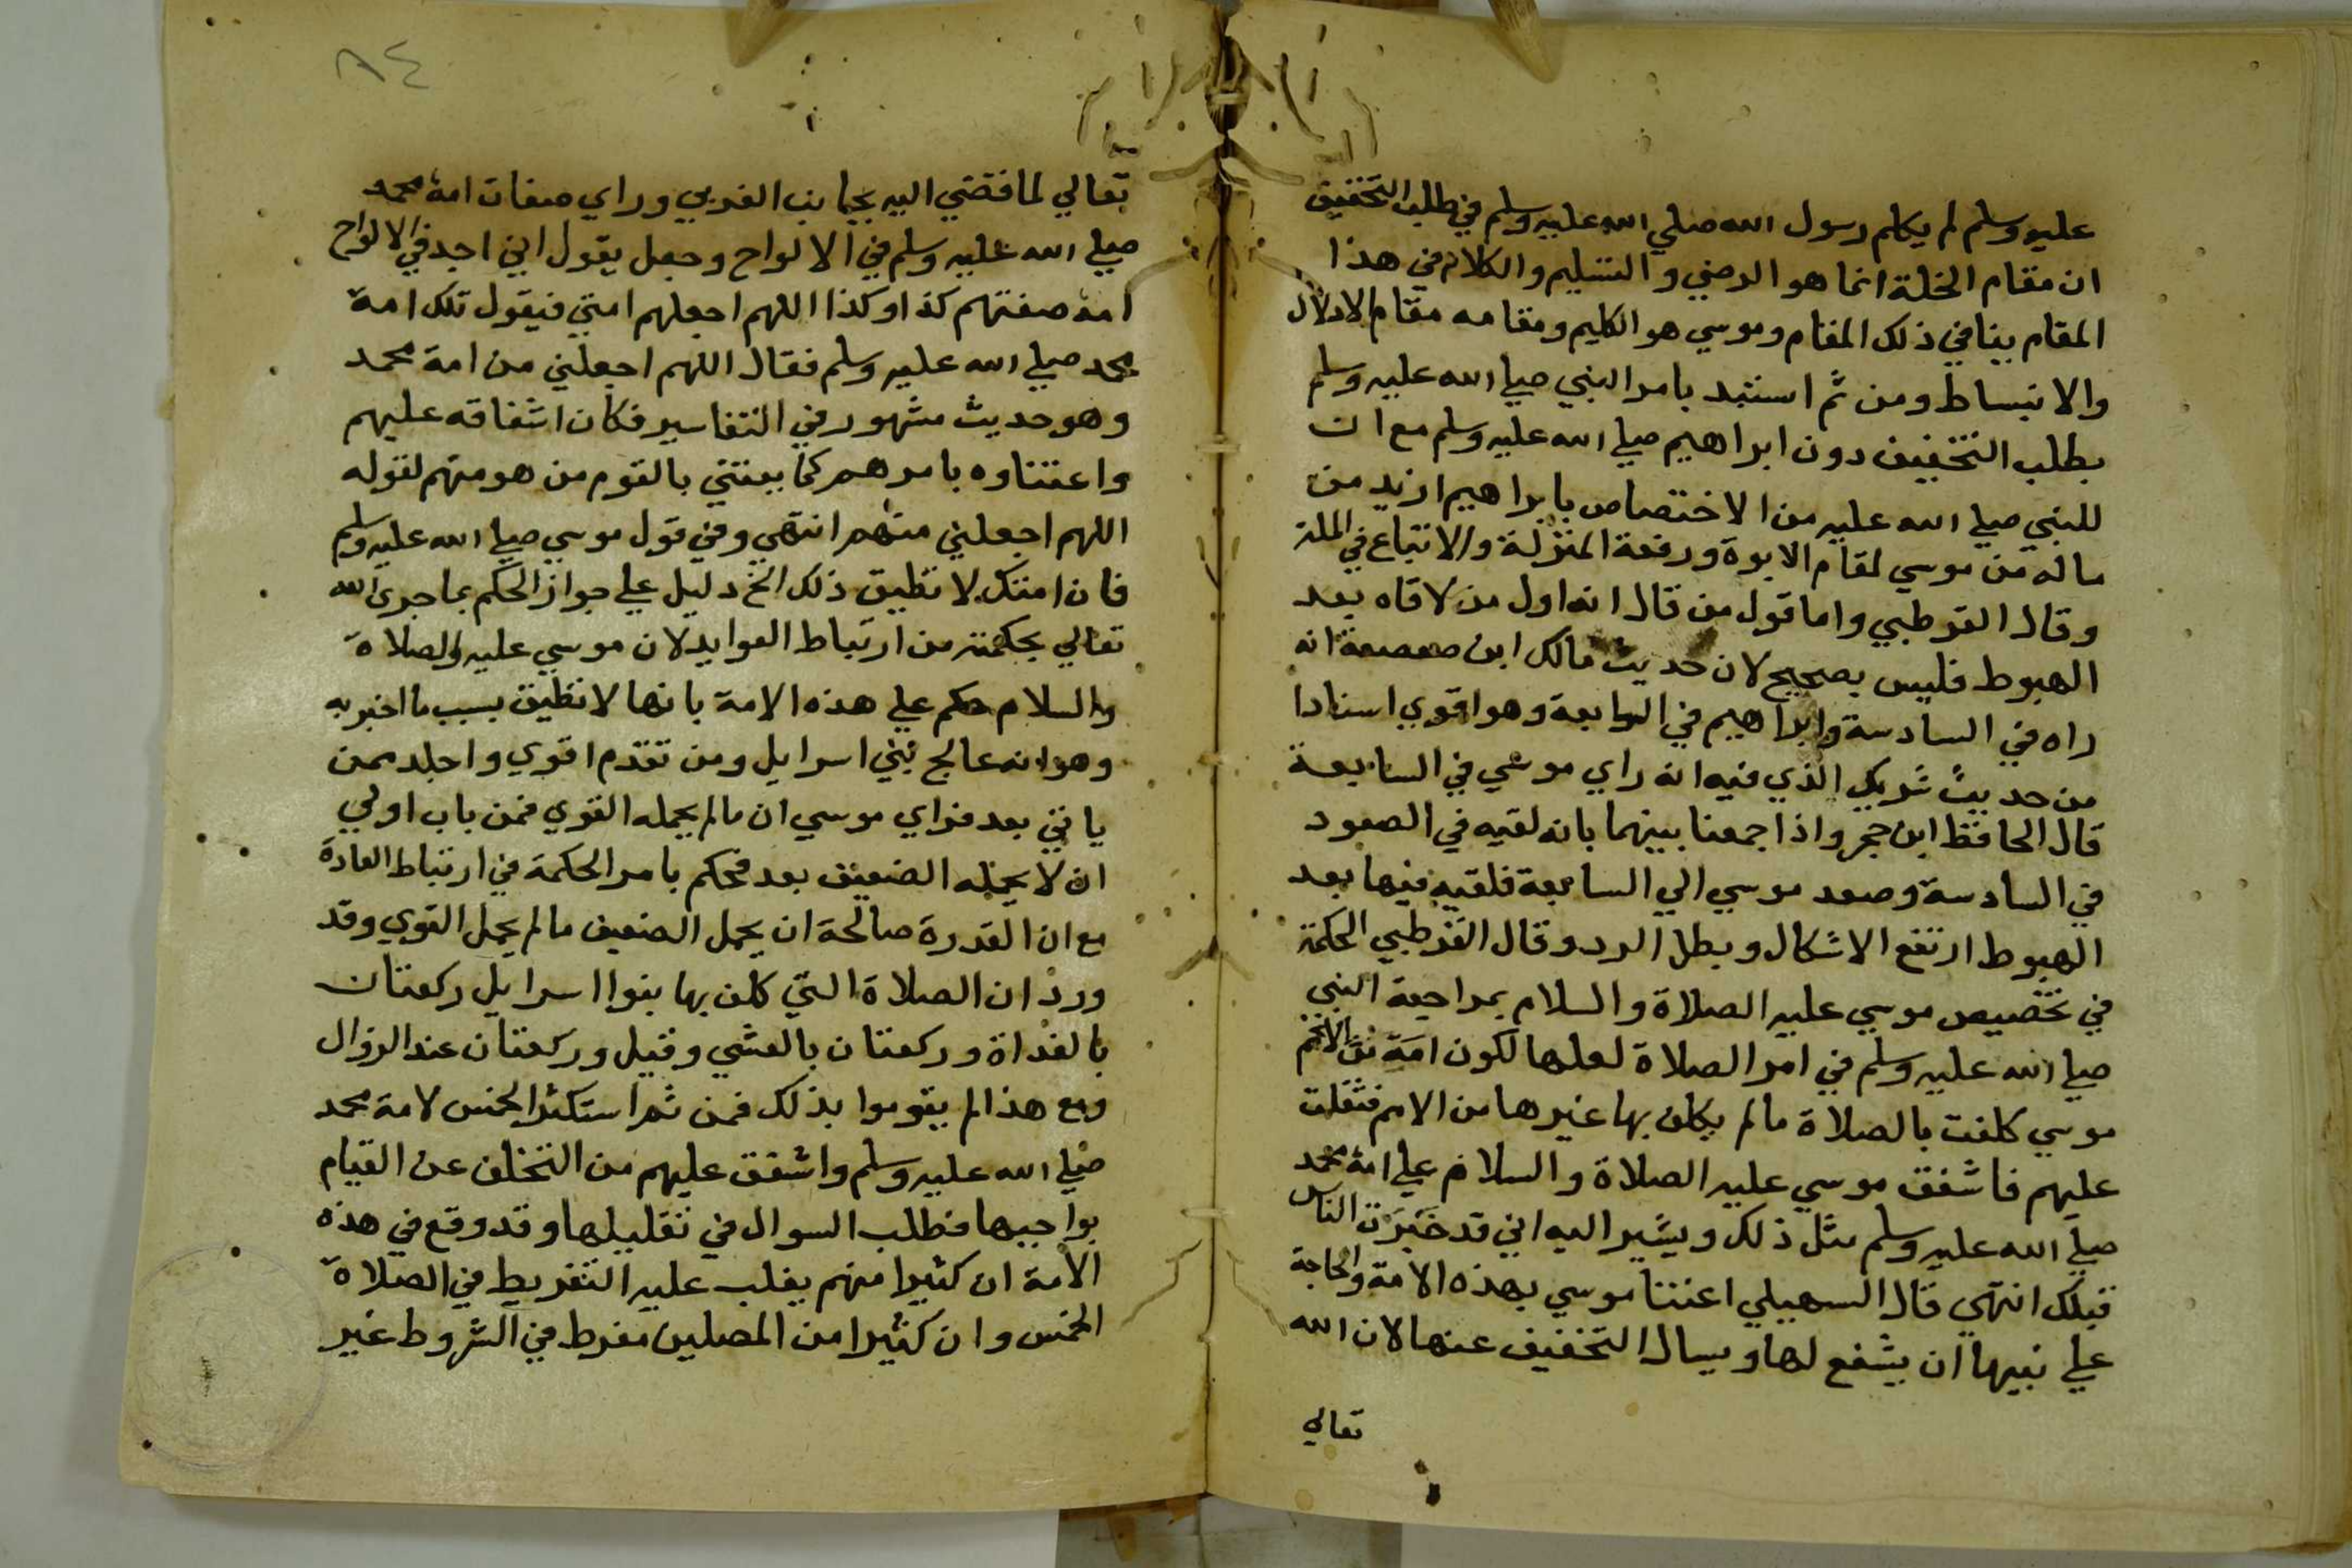 عليه وسلم لم يكلم رسول الله صلي الله عليه وسلم في طلب التخفيف
ان مقام الخلة انما هو الرضي والتسليم والكلام في هذا
المقام ينافي ذلك المقام وموسي هو الكليم ومقامه مقام الادلال
والانبساط ومن ثم استبد بامر النبي صلي الله عليه وسلم
بطلب التخفيف دون ابراهيم صلي الله عليه وسلم مع ان
للنبي صلي الله عليه من الاختصاص بابراهيم ازيد من
ماله من موسي لمقام الابوة ورفعة المنزلة والاتباع في الملة
وقال القرطبي واما قول من قال انه اول من لاقاه بعد
الهبوط فليس بصحيح لان حديث مالك ابن صعصعة انه
راه في السادسة وابراهيم في السابعة وهو اقوي اسنادا
من حديث شريك الذي فيه انه راي موسي في السابعة
قال الحافظ ابن حجر واذا جمعنا بينهما بانه لقيه في الصعود
في السادسة وصعد موسي الي السابعة فلقيه فيها بعد
الهبوط ارتفع الاشكال وبطل الرد وقال القرطبي الحكمة
في تخصيص موسي عليه الصلاة والسلام بمراجعة النبي
صلي الله عليه وسلم في امر الصلاة لعلها لكون امة
موسي كلفت بالصلاة ما لم يكلف بها غيرها من الامم فثقلت
عليهم فاشفق موسي عليه الصلاة والسلام علي امة محمد
صلي الله عليه وسلم مثل ذلك ويشير اليه اني قد خبرت الناس
قبلك انتهي قال السهيلي اعتنا موسي بهذه الامة والحاجة
علي نبيها ان يشفع لها ويسال التخفيف عنها لان الله
تعالي
٨٤
تعالي لما قضي اليه بجانب الغربي وراي صفات امة محمد
صلي الله عليه وسلم في الالواح وجعل يقول اني اجد في الالواح
امة صفتهم كذا وكذا اللهم اجعلهم امتي فيقول تلك امة
محمد صلي الله عليه وسلم فقال اللهم اجعلني من امة محمد
وهو حديث مشهور في التفاسير فكان اشفاقه عليهم
واعتناوه بامرهم كما يعتني بالقوم من هو منهم لقوله
اللهم اجعلني منهم انتهي وفي قول موسي صلي الله عليه وسلم
فان امتك لا تطيق ذلك الخ دليل علي جواز الحكم بما جري الله
تعالي بحكمته من ارتباط العوايد لان موسي عليه الصلاة
والسلام حكم علي هذه الامة بانها لا تطيق بسبب ما اخبر به
وهو انه عالج بني اسرايل ومن تقدم اقوي واجلد ممن
ياتي بعد فراي موسي ان ما لم يحمله القوي فمن باب اولي
ان لا يحمله الضعيف بعد فحكم بامر الحكمة في ارتباط العادة
مع ان القدرة صالحة ان يحمل الضعيف ما لم يحمل القوي وقد
ورد ان الصلاة التي كلف بها بنوا اسرايل ركعتان
بالغداة وركعتان بالعشي وقيل وركعتان عند الزوال
ومع هذا لم يقوموا بذلك فمن ثم استكثر الخمس لامة محمد
صلي الله عليه وسلم واشفق عليهم من التخلف عن القيام
بواجبها فطلب السوال في تقليلها وقد وقع في هذه
الامة ان كثيرا منهم يغلب عليه التفريط في الصلاة
الخمس وان كثيرا من المصلين مفرط في الشروط غير